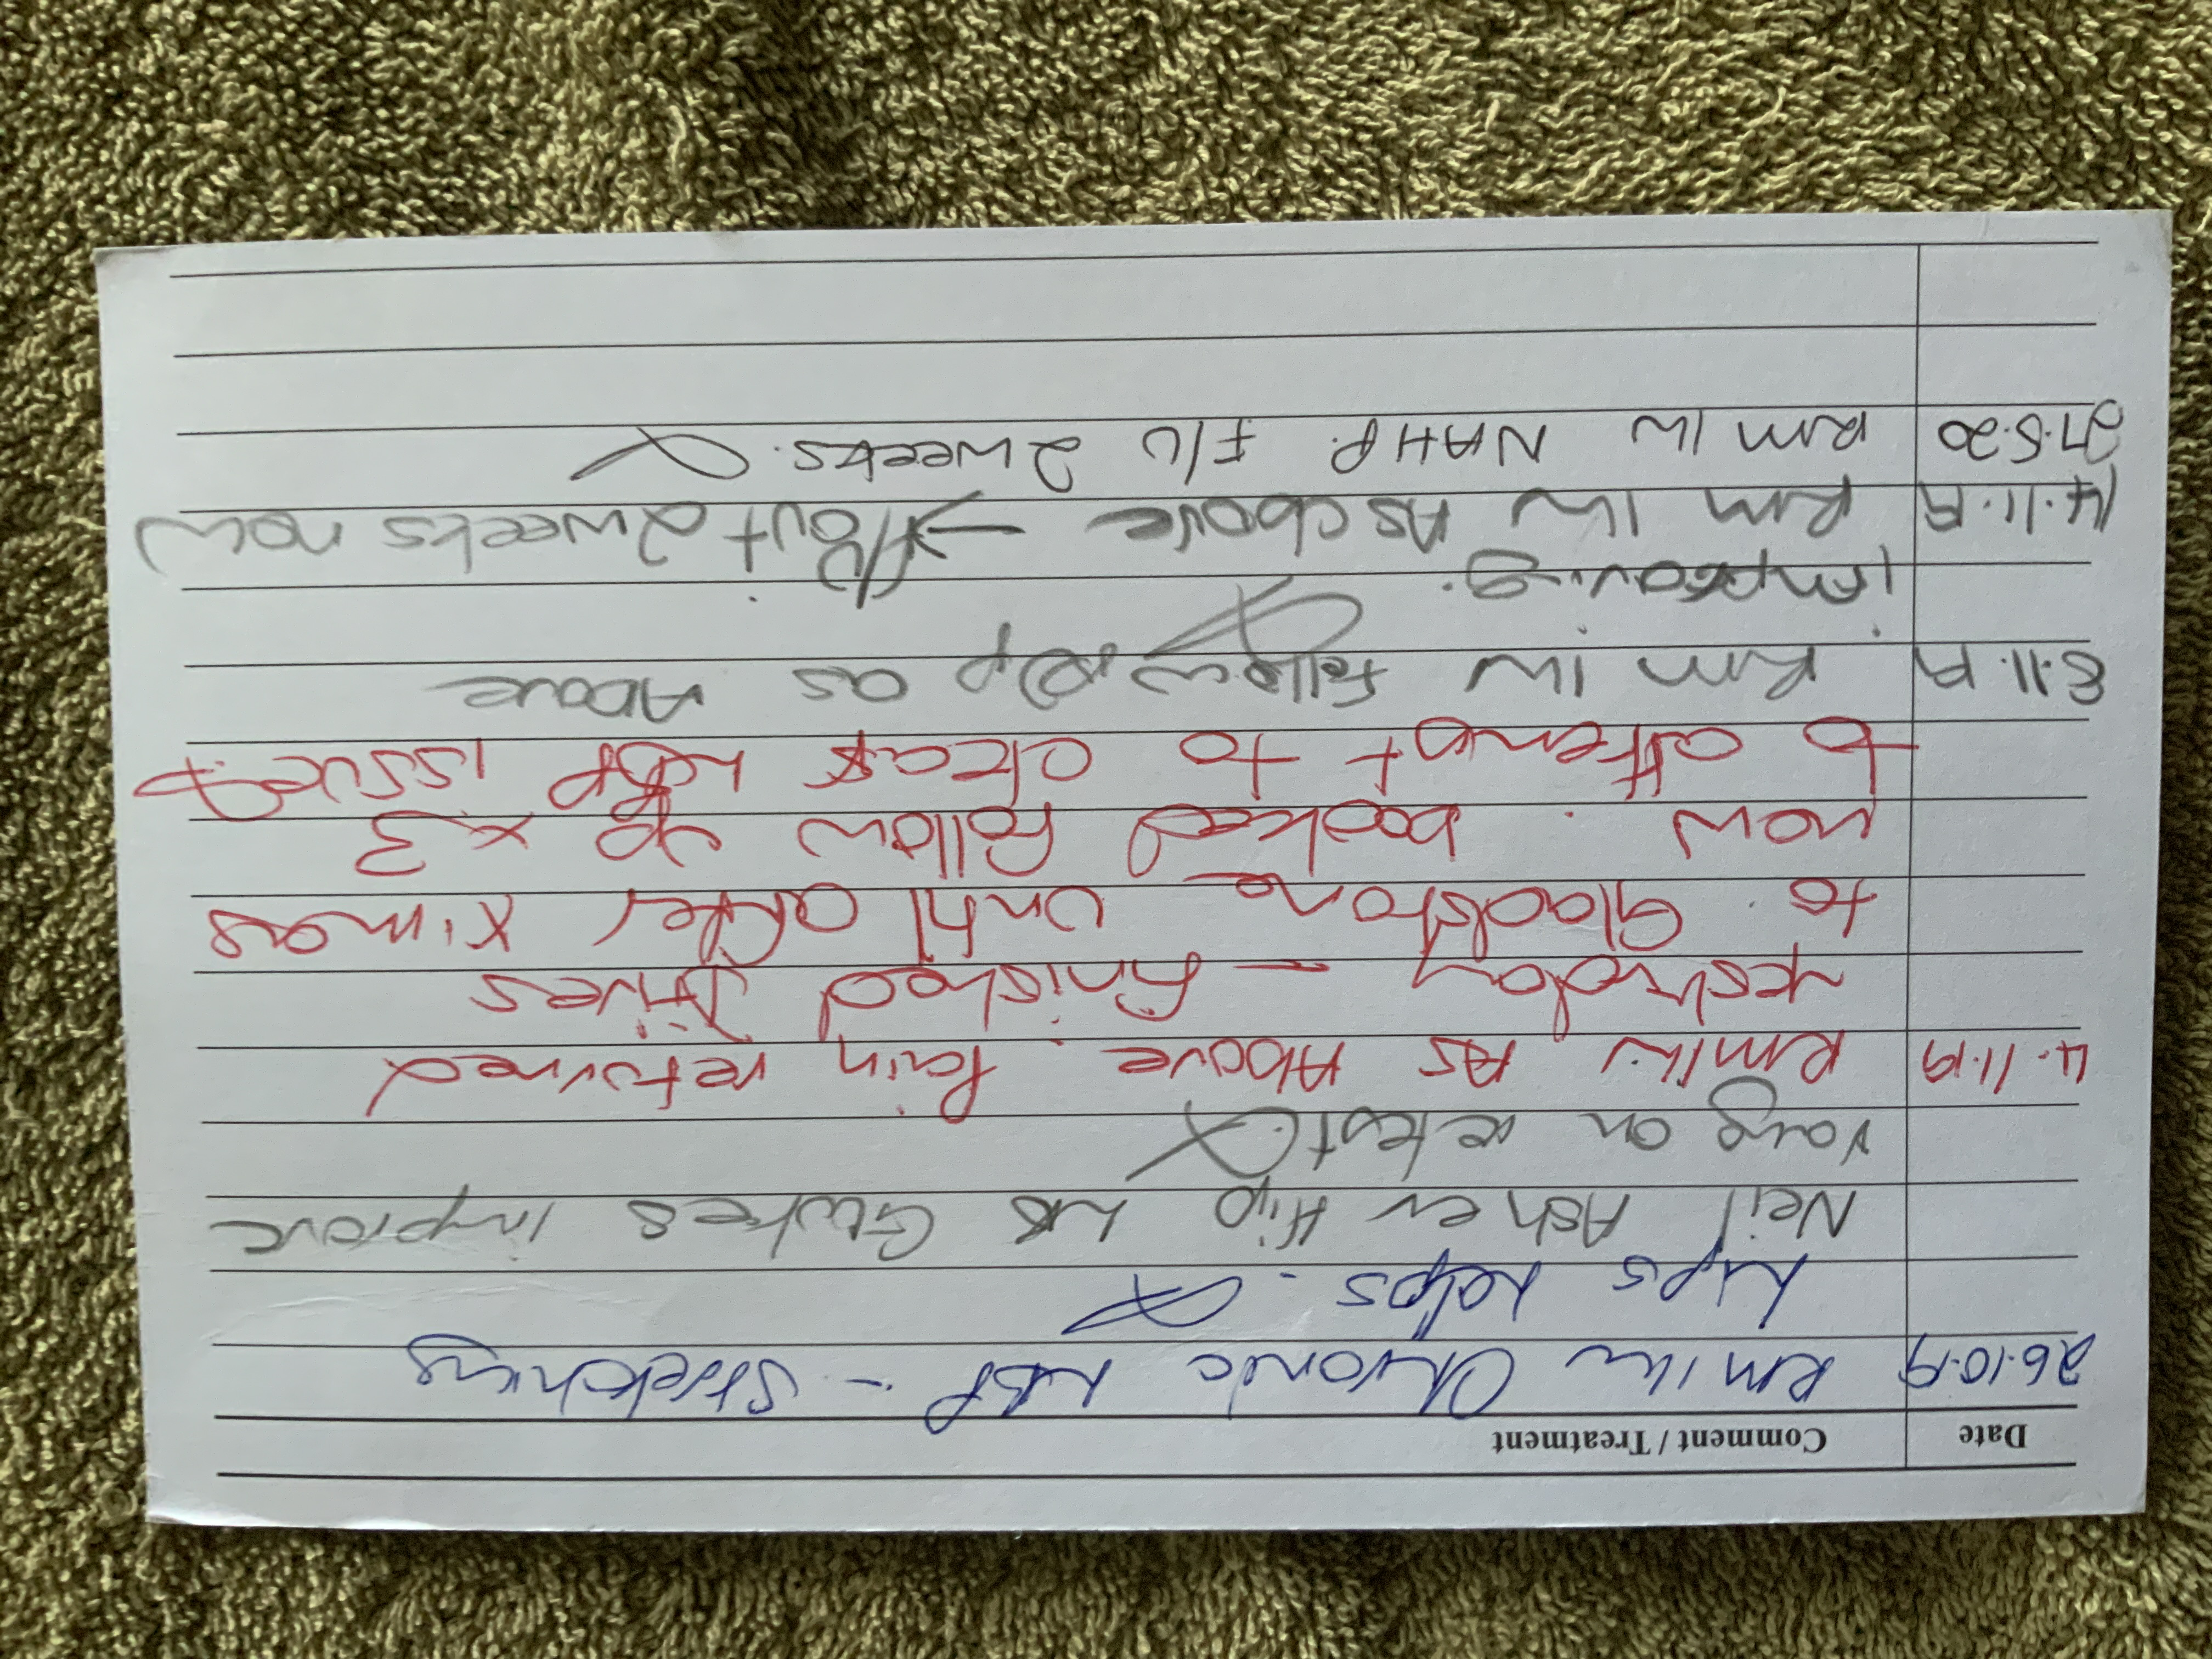 Date Comment / Treatment
26.10.19 RM 1hr Chronic LBP - Stretching
hips helps.
Neil Asher Hip LB Glutes improve
rang on retest
4.11.19 RM1hr As Above. Pain returned
yestrday - finished Drives
to Gladstone until after X.mas
now. booked follow up x 3
to attempt to clear LBP issue.
8.11.19 RM 1hr follow up as Above
improving.
14.11.19 RM 1hr As above → F/U out 2weeks now
27.5.20 RM 1hr NAHP. F/U 2weeks.